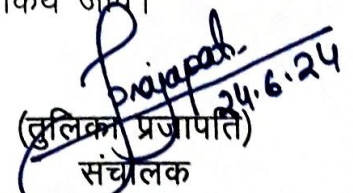 किये जाये।
Prajapati
24.6.24
(तुलिका प्रजापति)
संचालक